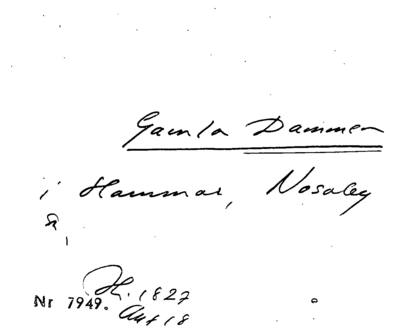 Gamla Dammen
i Hammar, Nosaby
sn,
H. 1827
Nr 7949. Akt 18